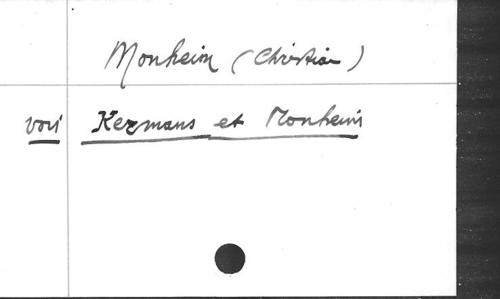 Monheim (Christian)
voir Kermans et Monheim